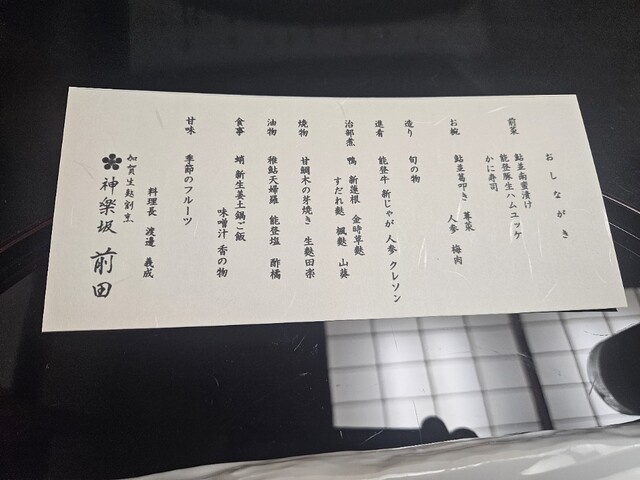 おしながき
前菜　鮎並南蛮漬け
能登豚生ハムユッケ
かに寿司
お椀　鮎並葛叩き　蓴菜
人参　梅肉
造り　旬の物
進肴　能登牛　新じゃが　人参　クレソン
治部煮　鴨　新蓮根　金時草麩
すだれ麩　楓麩　山葵
焼物　甘鯛木の芽焼き　生麩田楽
油物　稚鮎天婦羅　能登塩　酢橘
食事　蛸　新生姜土鍋ご飯
味噌汁　香の物
甘味　季節のフルーツ
料理長　渡邉　義成
加賀生麩割烹
神楽坂　前田